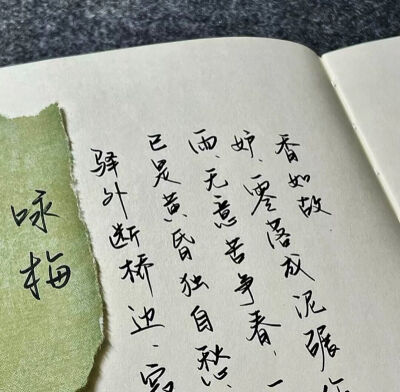 咏梅
驿外断桥边.
已是黄昏独自愁
雨.无意苦争春,一
妒.零落成泥碾
香如故